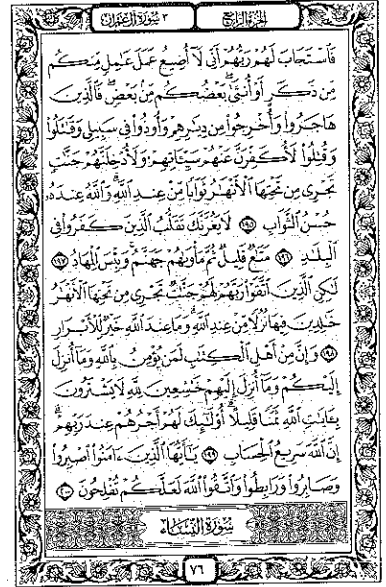 الجزء الرابع ٣ سورة آل عمران
فَٱسْتَجَابَ لَهُمْ رَبُّهُمْ أَنِّى لَآ أُضِيعُ عَمَلَ عَٰمِلٍ مِّنكُم
مِّن ذَكَرٍ أَوْ أُنثَىٰ بَعْضُكُم مِّنۢ بَعْضٍ فَٱلَّذِينَ
هَاجَرُوا۟ وَأُخْرِجُوا۟ مِن دِيَٰرِهِمْ وَأُوذُوا۟ فِى سَبِيلِى وَقَٰتَلُوا۟
وَقُتِلُوا۟ لَأُكَفِّرَنَّ عَنْهُمْ سَيِّـَٔاتِهِمْ وَلَأُدْخِلَنَّهُمْ جَنَّٰتٍ
تَجْرِى مِن تَحْتِهَا ٱلْأَنْهَٰرُ ثَوَابًا مِّنْ عِندِ ٱللَّهِ وَٱللَّهُ عِندَهُۥ
حُسْنُ ٱلثَّوَابِ ١٩٥ لَا يَغُرَّنَّكَ تَقَلُّبُ ٱلَّذِينَ كَفَرُوا۟ فِى
ٱلْبِلَٰدِ ١٩٦ مَتَٰعٌ قَلِيلٌ ثُمَّ مَأْوَىٰهُمْ جَهَنَّمُ وَبِئْسَ ٱلْمِهَادُ ١٩٧
لَٰكِنِ ٱلَّذِينَ ٱتَّقَوْا۟ رَبَّهُمْ لَهُمْ جَنَّٰتٌ تَجْرِى مِن تَحْتِهَا ٱلْأَنْهَٰرُ
خَٰلِدِينَ فِيهَا نُزُلًا مِّنْ عِندِ ٱللَّهِ وَمَا عِندَ ٱللَّهِ خَيْرٌ لِّلْأَبْرَارِ
١٩٨ وَإِنَّ مِنْ أَهْلِ ٱلْكِتَٰبِ لَمَن يُؤْمِنُ بِٱللَّهِ وَمَآ أُنزِلَ
إِلَيْكُمْ وَمَآ أُنزِلَ إِلَيْهِمْ خَٰشِعِينَ لِلَّهِ لَا يَشْتَرُونَ
بِـَٔايَٰتِ ٱللَّهِ ثَمَنًا قَلِيلًا أُو۟لَٰٓئِكَ لَهُمْ أَجْرُهُمْ عِندَ رَبِّهِمْ
إِنَّ ٱللَّهَ سَرِيعُ ٱلْحِسَابِ ١٩٩ يَٰٓأَيُّهَا ٱلَّذِينَ ءَامَنُوا۟ ٱصْبِرُوا۟
وَصَابِرُوا۟ وَرَابِطُوا۟ وَٱتَّقُوا۟ ٱللَّهَ لَعَلَّكُمْ تُفْلِحُونَ ٢٠٠
سورة النساء
٧٦